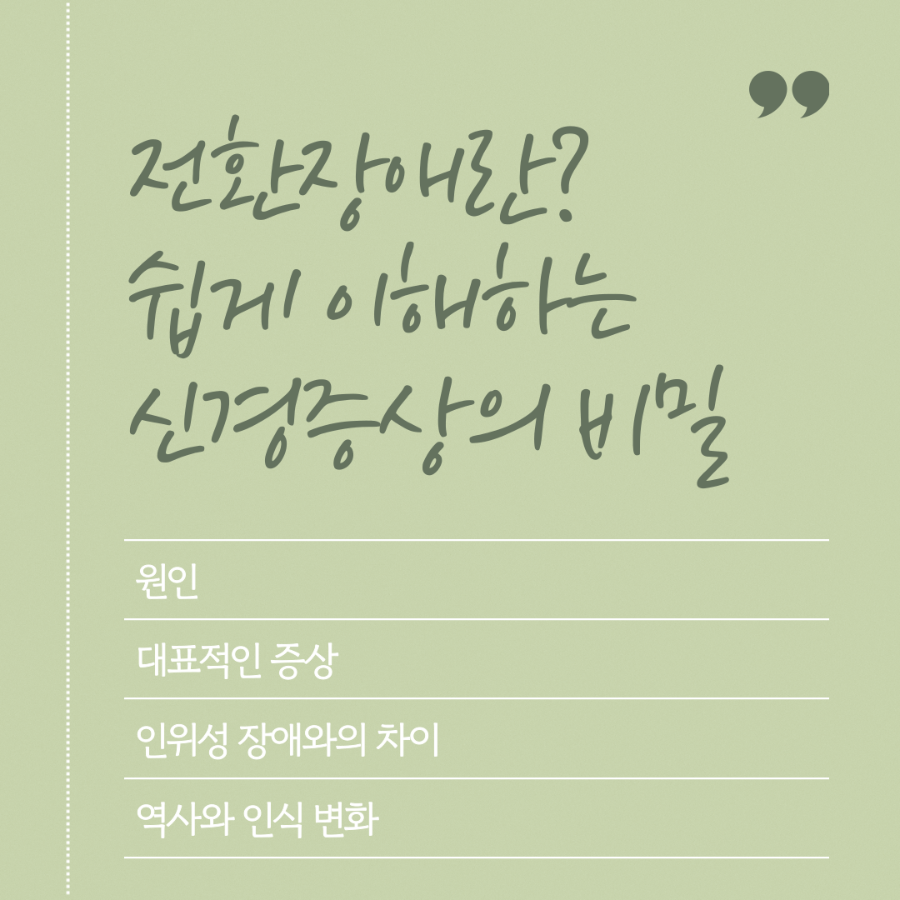 ”
전환장애란?
쉽게 이해하는
신경증상의 비밀
원인
대표적인 증상
인위성 장애와의 차이
역사와 인식 변화